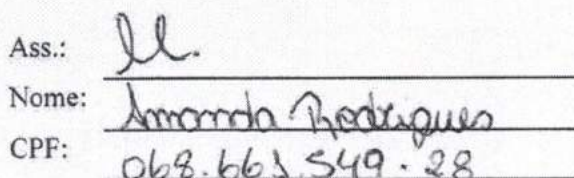 Ass.:
Nome: Amanda Rodrigues
CPF: 068.661.549-28